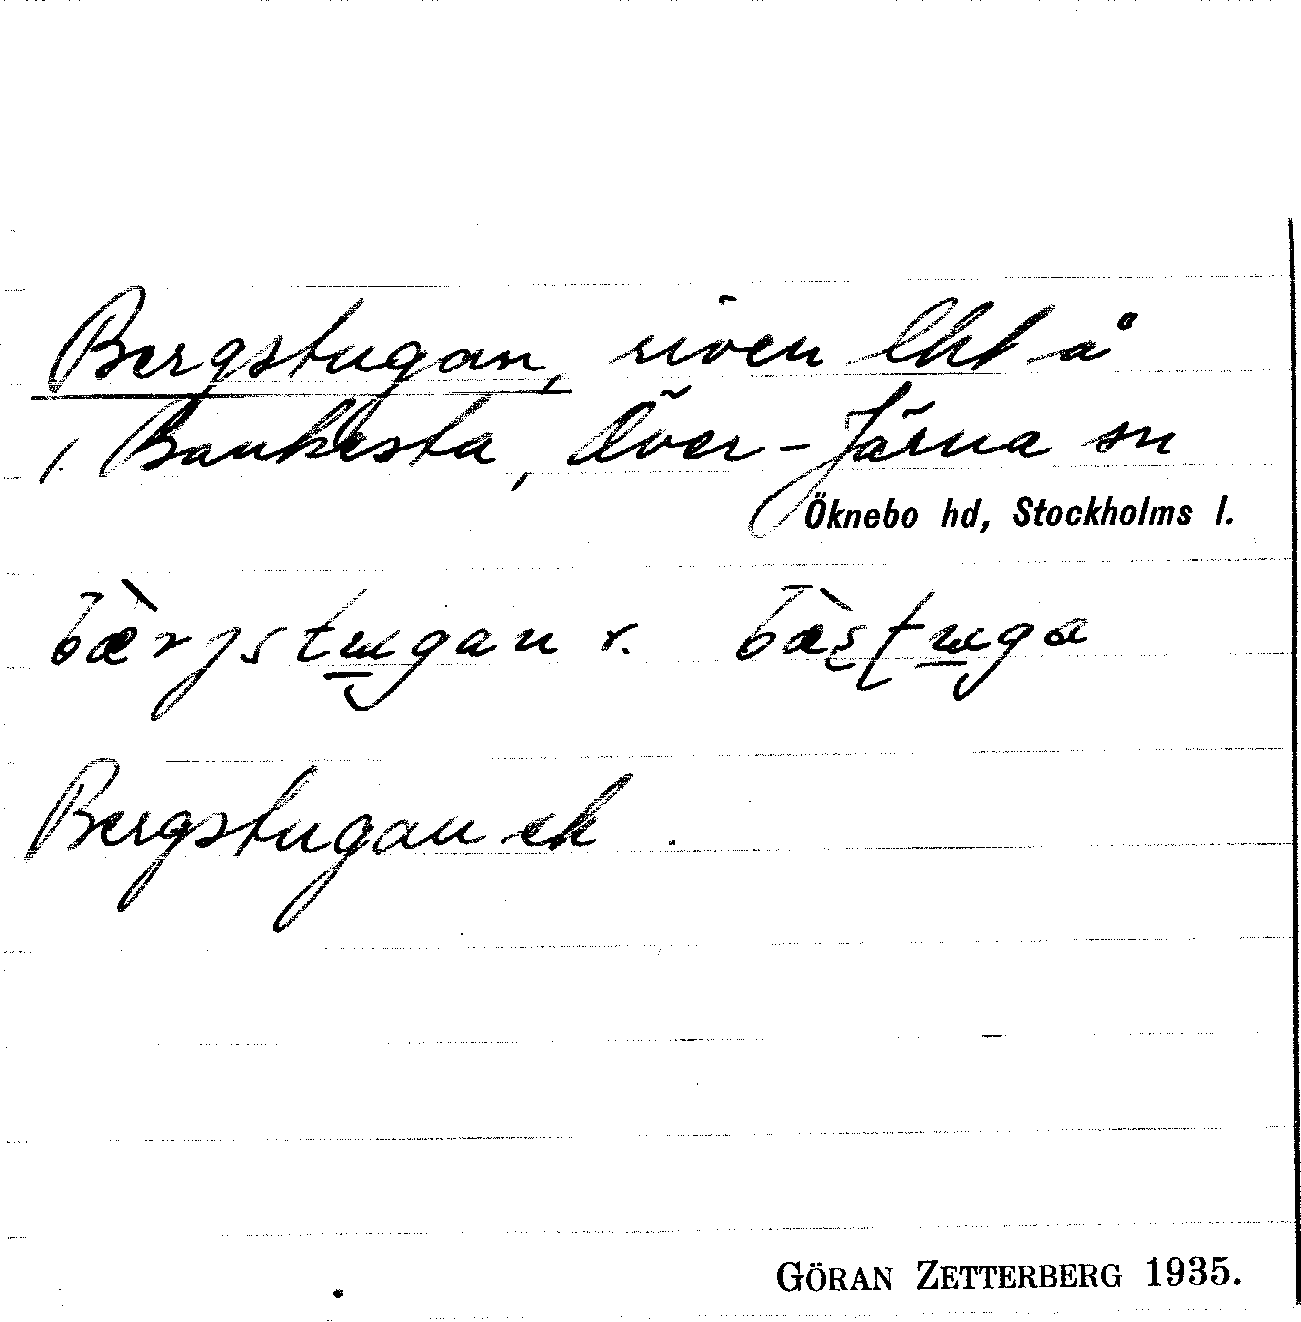 Bergstugan, riven lht å
1. Bankesta, Över-Järna sn
Öknebo hd, Stockholms l.
bæ̀rjstɯgan r. bæ̀s̠tɯga
Bergstugan ek
GÖRAN ZETTERBERG 1935.